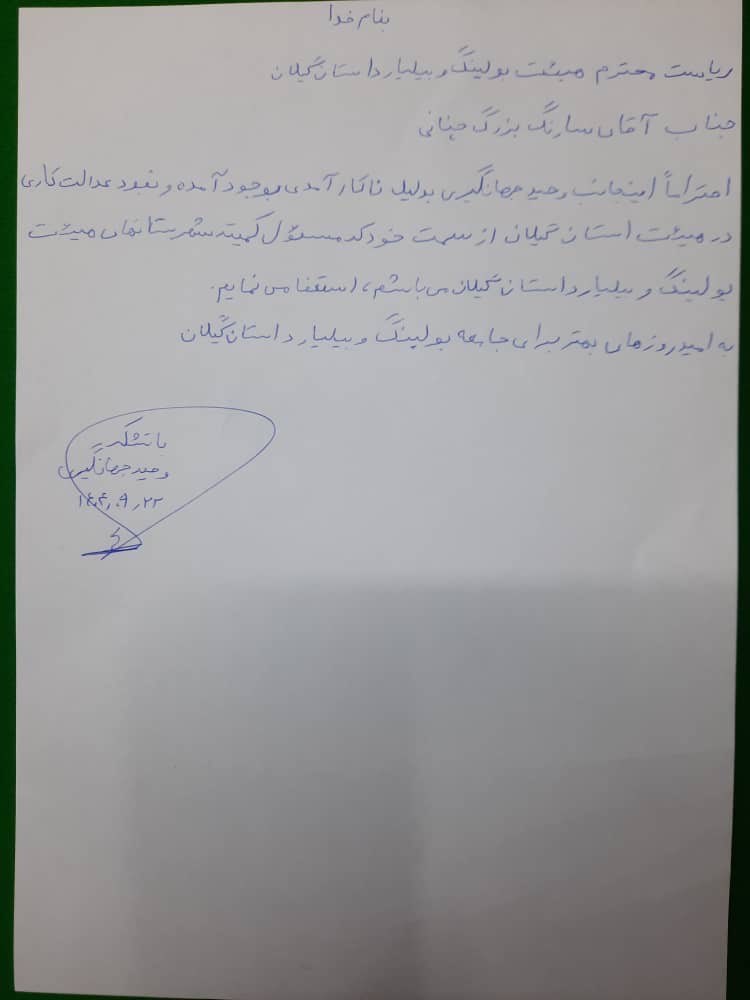 بنام خدا
ریاست محترم هیئت بولینگ و بیلیارد استان گیلان
جناب آقای سارنگ بزرگ چنانی
احتراماً اینجانب وحید جهانگیری بدلیل ناکارآمدی بوجود آمده و نبود عدالت کاری
در هیئت استان گیلان از سمت خود که مسئول کمیته شهرستانهای هیئت
بولینگ و بیلیارد استان گیلان می باشم، استعفا می نمایم.
به امید روزهای بهتر برای جامعه بولینگ و بیلیارد استان گیلان
با تشکر
وحید جهانگیری
۱۴۰۴٫۰۹٫۲۲